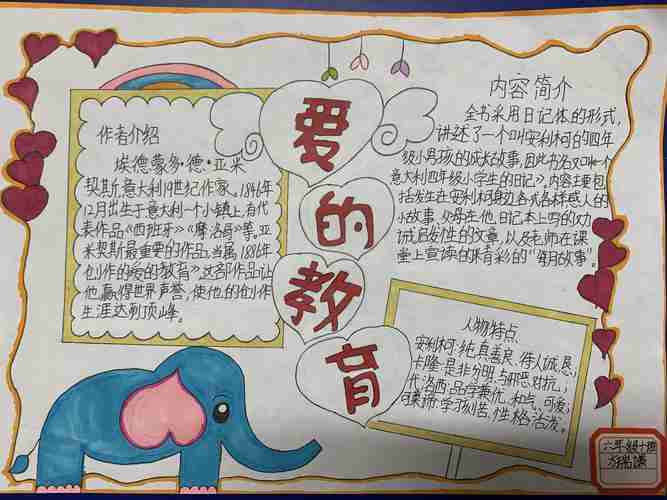 爱的教育
作者介绍
埃德蒙多·德·亚米
契斯,意大利19世纪作家。1846年
12月出生于意大利一个小镇上,有代
表作品《西班牙》《摩洛哥》等。亚
米契斯最重要的作品,当属1886年
创作的《爱的教育》这部作品让
他赢得世界声誉,使他的创作
生涯达到顶峰。
内容简介
全书采用日记体的形式,
讲述了一个叫安利柯的四年
级小男孩的成长故事,因此书名又叫《一个
意大利四年级小学生的日记》。内容主要包
括发生在安利柯身边各式各样感人的
小故事,父母在他日记本上写的劝
诫启发性的文章,以及老师在课
堂上宣读的精彩的“每月故事”。
人物特点
安利柯:纯真善良、待人诚恳;
卡隆:是非分明,与邪恶对抗;
代洛西:品学兼优、和气、可爱;
可莱谛:学习刻苦,性格活泼。
六年级十班